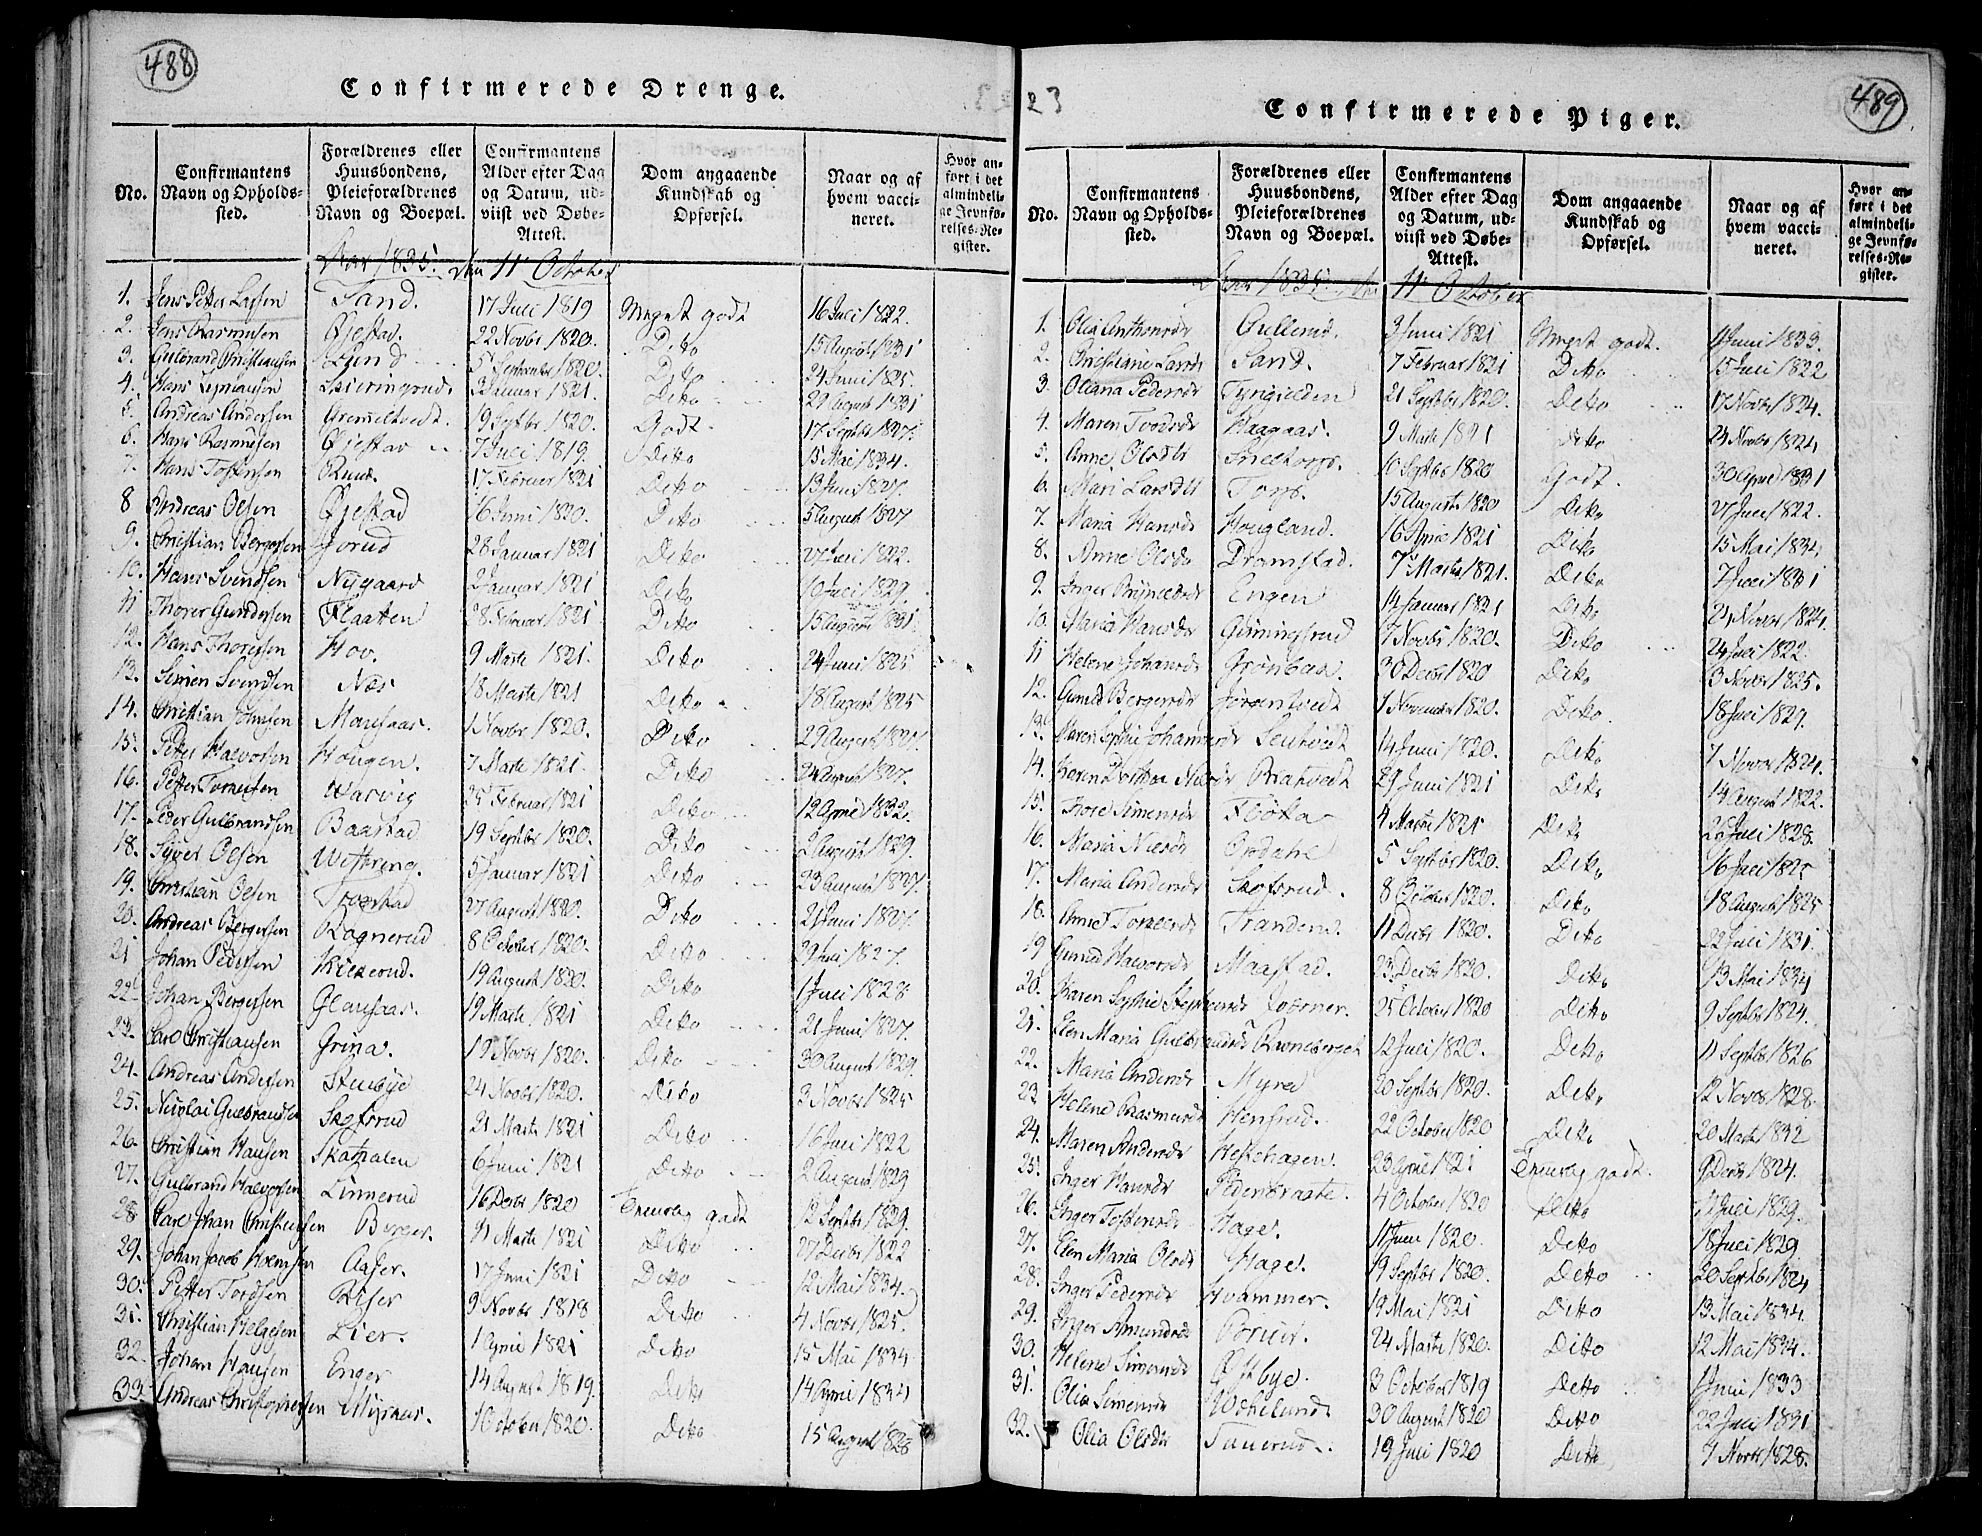 488
Confirmerede Drenge.
No.
Confirmantens Navn og Opholdssted.
Forældrenes eller Huusbondens, Pleieforældrenes Navn og Boepæl.
Confirmantens Alder efter Dag og Datum, udviist ved Døbe-Attest.
Dom angaaende Kundskab og Opførsel.
Naar og af hvem vaccineret.
Hvor anført i det almindelige Jevnførelses-Register.
Aar 1835. den 11te October
1. Jens Petter Larsen Sand. 17 Juli 1819 Meget godt 16 Juli 1822.
2. Jens Rasmusen Gjestad. 22 Novbr 1820. Dito 15 August 1831
3. Gulbrand Christiansen Lund 5 September 1820. Dito 24 Juni 1825.
4. Hans 3 Januar 1821. Dito 29 August 1831
5. Andreas Andersen Gremeltvedt. 19 Septbr 1820. Godt. 17 Septbr 1827.
6. Hans Rasmusen Gjestad 7 Juli 1819. Dito 15 Mai 1834.
7. Hans Tostensen Ruud. 17 Februar 1821 Ditto 13 Juni 1827.
8 Andreas Olsen Gjestad 16 Juni 1820. Dito 5 August 1827
9. Christian Bergersen Jorud 28 Januar 1821 Ditto 27 Juli 1822.
10. Hans Svendsen Nygaard 2 Januar 1821 Dito 10 Juli 1829.
11 Thorer Gundersen Flaaten 28 Februar 1821 Ditto 15 August 1831.
12. Hans Thoresen Hov. 9 Marts 1821. Ditto 24 Juni 1825
13. Simen Svendsen Næs 18 Marts 1821 Ditto 18 August 1825
14. Christian Johnsen 1 Novbr 1820. Ditto 29 August 1827.
15. Petter Halvorsen Hougen. 7 Marts 1821. Ditto 24 August 1827.
16. Petter Harvig 25 Februar 1821 Ditto 12 April 1832.
17. Peder Gulbrandsen Baastad 19 Septbr 1820. Ditto 2 August 1829.
18. Syver Olsen 5 Januar 1821 Ditto 23 August 1827.
19. Christian Olsen Trøgstad 27 August 1820. Ditto 21 Juni 1827.
20. Andreas Bergersen Ragnerud 8 October 1820. Ditto 29 Juli 1827.
21 Johan Pedersen 19 August 1820. Ditto 1 Juli 1828
22. Johan Bergersen 19 Marts 1821 Ditto 21 Juni 1827.
23. Carl Christiansen Grina. 19 Novbr 1820. Ditto 30 August 1829.
24. Andreas Andersen Stenbye 24 Novbr 1820. Ditto 3 Novbr 1825
25. Nicolai Gulbrandsen Skofsrud 21 Marts 1821 Ditto 16 Juli 1822
26. Christian Hansen Skattalen 6 Juni 1821 Ditto 2 August 1829
27. Gulbrand Halvorsen Linnerud 16 Decbr 1820 Temelig godt 12 Septbr 1829.
28 Carl Johan Christensen Berger. 11 Marts 1821 Ditto 27 Decbr 1822
29. Johan Jacob Aaser. 17 Juni 1821 Ditto 12 Mai 1834.
30. Petter Tordsen Riser 9 Novbr 1818 Ditto 4 Novbr 1825.
31. Christian Helgesen Lier. 1 April 1821 Ditto 15 Mai 1834
32. Johan Hansen Enger 14 August 1819. Ditto 14 April 1834
33. Andreas Christophersen Myraas. 1 October 1820. Ditto 15 August 1828
489
23
Confirmerede Piger.
No.
Confirmantens Navn og Opholdssted.
Forældrenes eller Huusbondens, Pleieforældrenes Navn og Boepæl.
Confirmantens Alder efter Dag og Datum, udviist ved Døbe-Attest.
Dom angaaende Kundskab og Opførsel.
Naar og af hvem vaccineret.
Hvor anført i det almindelige Jevnførelses-Register.
Aar 1835 den 11te October
1. Olia Anthonsdr Gullerud. 3 Juni 1821 Meget godt. 1 Juni 1833
2. Christiane Larsdr Sand. 7 Februar 1821 Ditto 15 Juli 1822
3. Oliana Pedersdr Tyrigjelden 21 Septbr 1820. Ditto 17 Novbr 1824.
4. Maren Haagaas. 9 Marts 1821 Ditto 24 Novbr 1824
5. Anne Olsdtr 10 Septbr 1820 Godt. 30 April 1831
6. Mari Larsdtr Torp. 15 August 1820 Ditto 27 Juli 1822.
7. Maria Hansdr Hougland. 16 April 1821 Ditto 15 Mai 1834
8. Anne Olsdr Dramstad. 7de Marts 1821. Ditto 7 Juli 1831
9. Inger Engen 14 Januar 1821 Ditto 24 Novbr 1824.
10. Maria Hansdr 7 Novbr 1820. Ditto 24 Juli 1822
11 Helene Johansdr 30 Decbr 1820 Ditto 3 Novbr 1825.
12. Gunild Bergersdr 1 November 1820. Ditto 18 Juli 1829.
13. Maren Sophie 14 Juni 1820. Ditto 7 Novbr 1824.
14. Karen 29 Juni 1821 Ditto 14 August 1822.
15. Thore Simensdr 4 Marts 1821 Ditto 26 Juli 1828.
16. Maria Nielsdr Opdahl 5 Septbr 1820. Ditto 16 Juli 1825
17. Maria Andersdr Skofsrud. 8 October 1820. Ditto 18 August 1825
18. Anne Trandem. 11 Decbr 1820. Ditto 22 Juli 1831.
19 Gunild Halvorsdr Maastad. 23 Decbr 1820. Ditto 13 Mai 1834
20. Karen Sophie 25 October 1820 Ditto 9 Septbr 1824.
21. Elen Maria Gulbrandsdr 12 Juli 1820. Ditto 11 Septbr 1826
22. Maria Andersdr Myra 20 Septbr 1820. Ditto 12 Novbr 1828.
23 Helene Rasmusdr 22 October 1820 Ditto 20 Marts 1832
24. Maren Andersdr Heschagen. 23 April 1821 Temelig godt. 9 Decbr 1824.
25. Inger Hansdr Pedersbraate. 4 October 1820 Ditto 11 Juli 1829.
26. Inger Tostensdr Hage. 11 Juni 1820. Ditto 18 Juli 1829
27. Elen Maria Olsdr Hage. 19 Septbr 1820. Ditto 20 Septbr 1824
28. Inger Pedersdr Hvammer. 19 Mai 1821 Ditto 13 Mai 1834.
29. Inger Amundsdr 24 Marts 1820. Ditto 12 Mai 1834.
30. Helene Simensdr Østbye. 3 October 1819 Ditto 1 Juni 1833
31. Olia Simensdr 30 August 1820 Ditto 22 Juli 1831
32. Olia Olsdr 19 Juli 1820 Ditto 4 Novbr 1828.